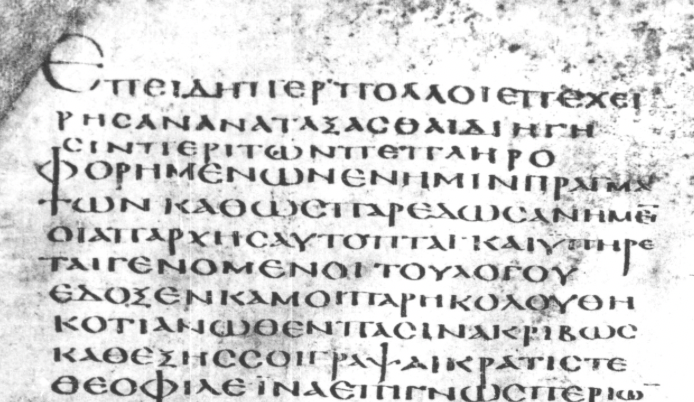 ΕΠΕΙΔΗΠΕΡΠΟΛΛΟΙΕΠΕΧΕΙ
ΡΗϹΑΝΑΝΑΤΑΞΑϹΘΑΙΔΙΗΓΗ
ϹΙΝΠΕΡΙΤΩΝΠΕΠΛΗΡΟ
ΦΟΡΗΜΕΝΩΝΕΝΗΜΙΝΠΡΑΓΜΑ
ΤΩΝΚΑΘΩϹΠΑΡΕΔΩϹΑΝΗΜΕῙ
ΟΙΑΠΑΡΧΗϹΑΥΤΟΠΤΑΙΚΑΙΥΠΗΡΕ
ΤΑΙΓΕΝΟΜΕΝΟΙΤΟΥΛΟΓΟΥ
ΕΔΟΞΕΝΚΑΜΟΙΠΑΡΗΚΟΛΟΥΘΗ
ΚΟΤΙΑΝΩΘΕΝΠΑϹΙΝΑΚΡΙΒΩϹ
ΚΑΘΕΞΗϹϹΟΙΓΡΑΨΑΙΚΡΑΤΙϹΤΕ
ΘΕΟΦΙΛΕΪΝΑΕΠΙΓΝΩϹΠΕΡΙΩ̅